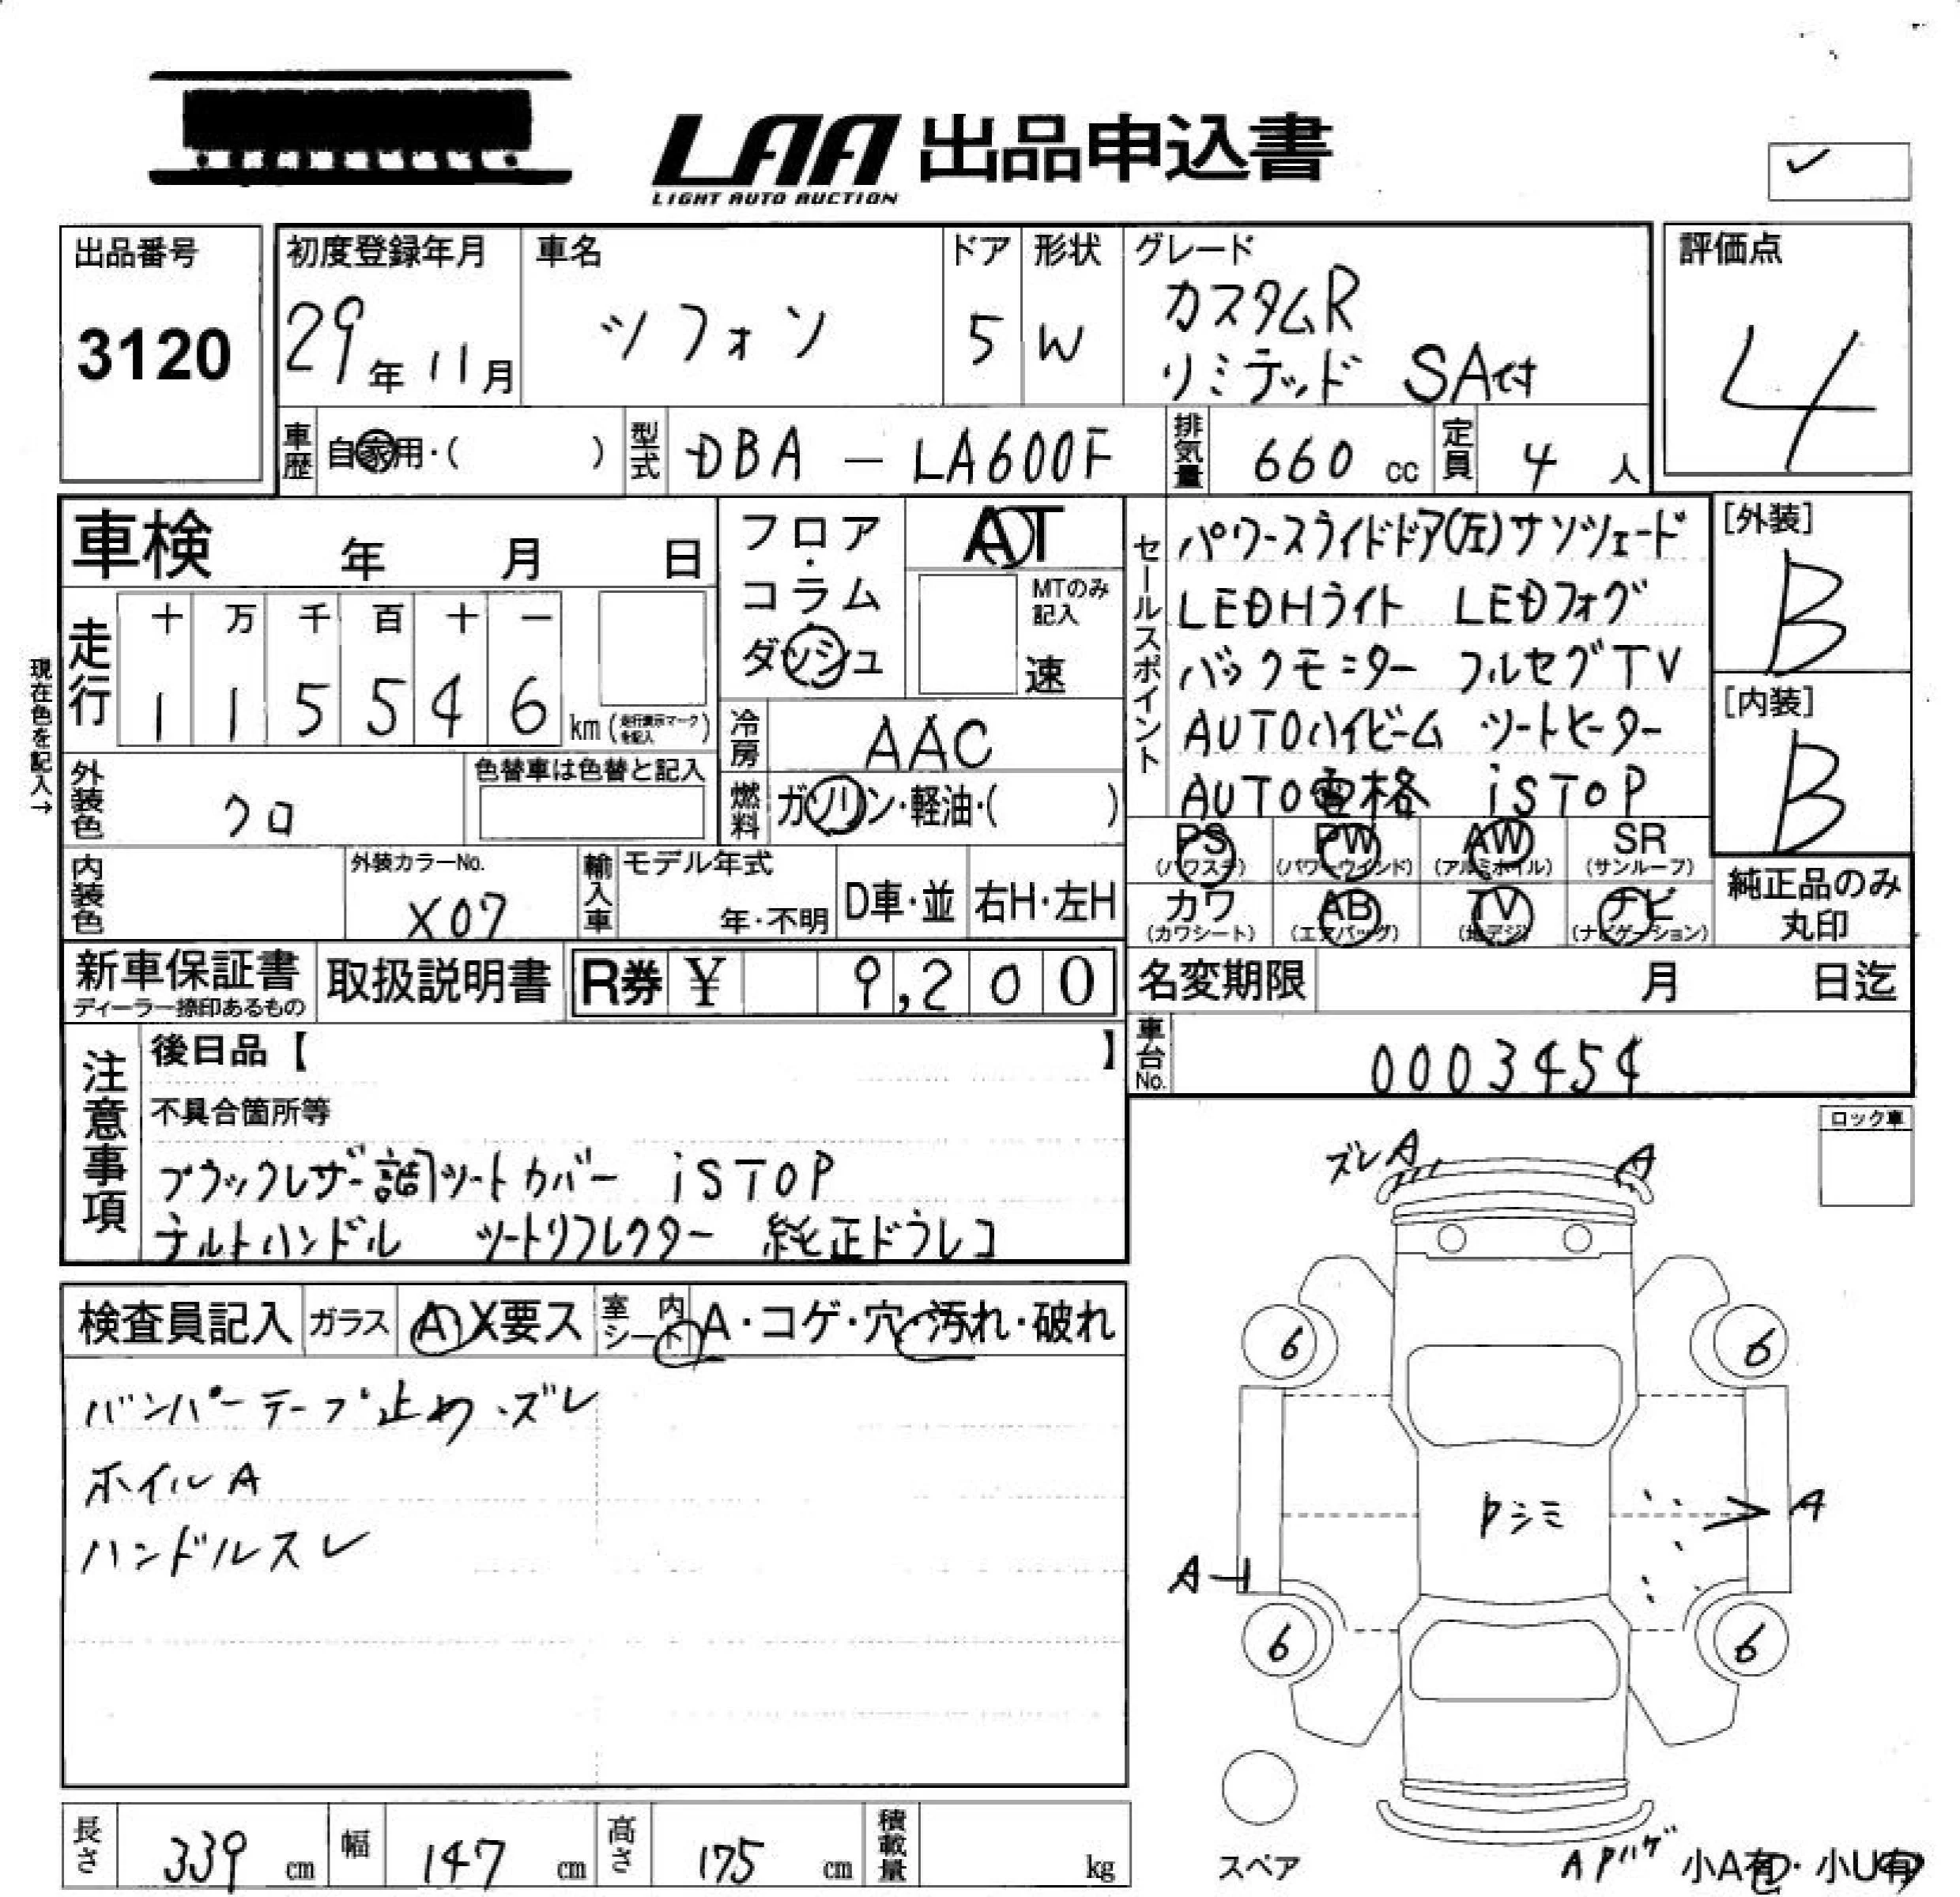 LAA 出品申込書
LIGHT AUTO AUCTION
出品番号
3120
初度登録年月
29年11月
車名
シフォン
ドア
5
形状
W
グレード
カスタムR
リミテッド SA付
評価点
4
車歴
自家用・( )
型式
DBA - LA600F
排気量
660 cc
定員
4 人
車検 年 月 日
走行
十 万 千 百 十 一
1 1 5 5 4 6 km (走行表示マークを記入)
現在色を記入→
フロア・
コラム・
ダッシュ
AT
MTのみ
記入
速
冷房
AAC
燃料
ガソリン・軽油・( )
外装色
クロ
色替車は色替と記入
内装色
外装カラーNo.
X07
輸入車
モデル年式
年・不明
D車・並
右H・左H
セールスポイント
パワースライドドア(左)サンシェード
LEDHライト LEDフォグ
バックモニター フルセグTV
AUTOハイビーム シートヒーター
AUTO電格 iSTOP
[外装]
B
[内装]
B
PS (パワステ)
PW (パワーウインド)
AW (アルミホイル)
SR (サンルーフ)
カワ (カワシート)
AB (エアバッグ)
TV (地デジ)
ナビ (ナビゲーション)
純正品のみ
丸印
新車保証書
ディーラー捺印あるもの
取扱説明書
R券 ¥ 9,200
名変期限 月 日迄
車台No.
0003454
注意事項
後日品【 】
不具合箇所等
ブラックレザー調シートカバー iSTOP
チルトハンドル シートリフレクター 純正ドラレコ
ロック車
検査員記入
ガラス
A X要ス
室内
シート
A・コゲ・穴・汚れ・破れ
バンパーテープ止め・ズレ
ホイルA
ハンドルスレ
ズレA
A
6
6
Pシミ
A
A-1
6
6
スペア
APハゲ
小A有・小U有
長さ
339 cm
幅
147 cm
高さ
175 cm
積載量
kg